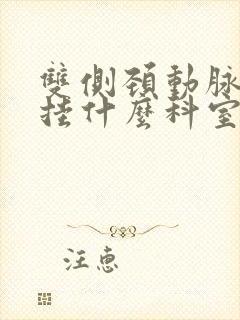 雙側頸動脈
掛什麼科室
汪惠